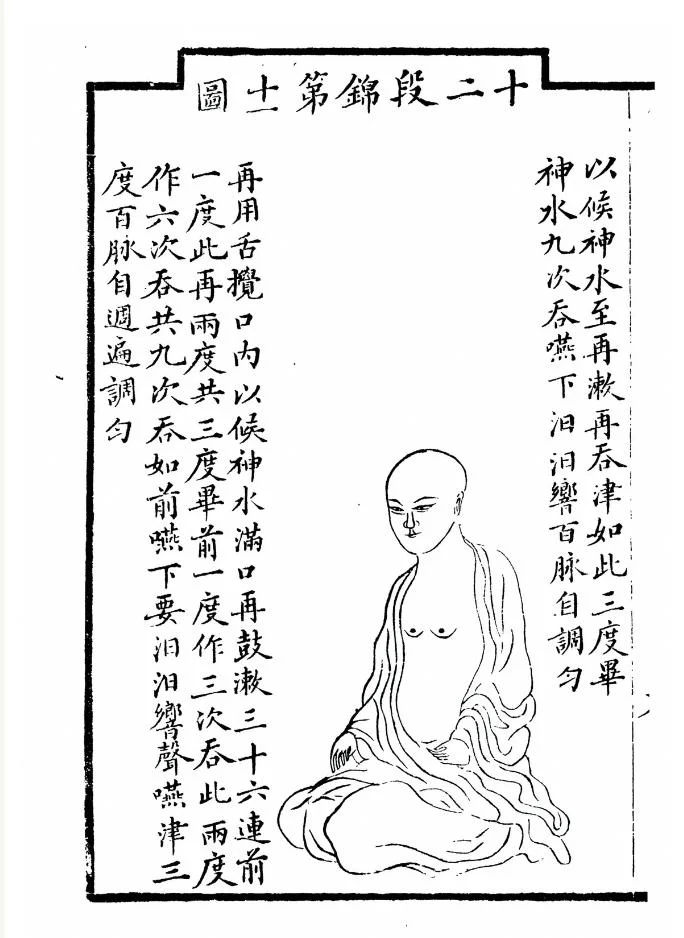 十二段錦第十一圖
以候神水至再漱再吞津如此三度畢
神水九次吞嚥下汩汩響百脉自調勻
再用舌攪口內以候神水滿口再鼓漱三十六連前
一度此再兩度共三度畢前一度作三次吞此兩度
作六次吞共九次吞如前嚥下要汩汩響聲嚥津三
度百脉自週遍調勻